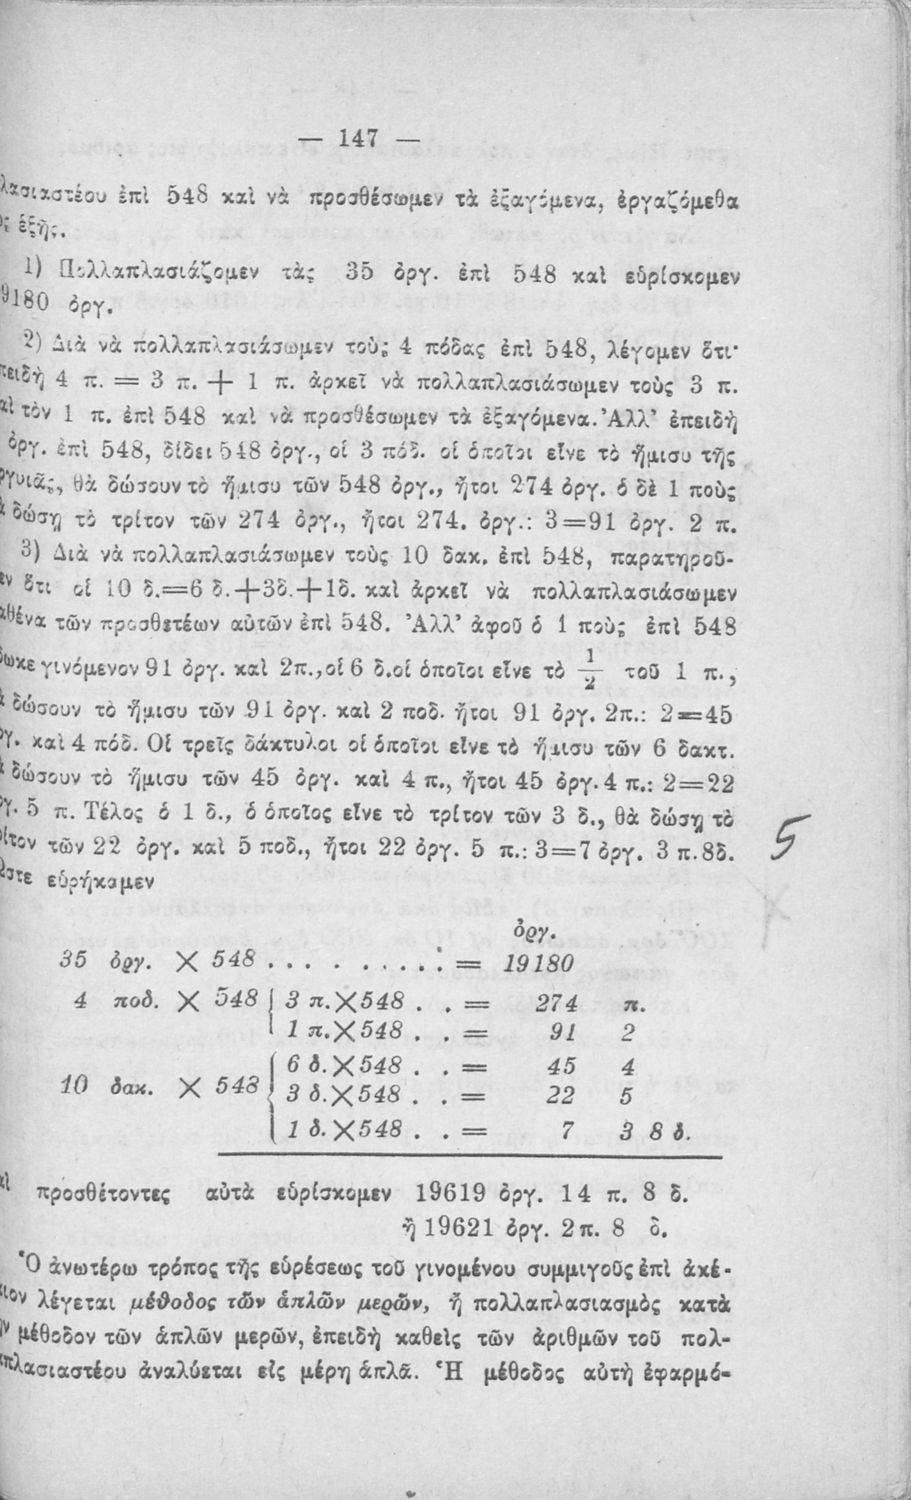 — 147 —
λασιαστέου ἐπὶ 548 καὶ νὰ προσθέσωμεν τὰ ἐξαγόμενα, ἐργαζόμεθα
ἑξῆς.
1) Πολλαπλασιάζομεν τὰς 35 ὀργ. ἐπὶ 548 καὶ εὑρίσκομεν
9180 ὀργ.
2) Διὰ νὰ πολλαπλασιάσωμεν τοὺς 4 πόδας ἐπὶ 548, λέγομεν ὅτι·
πειδὴ 4 π. = 3 π. + 1 π. ἀρκεῖ νὰ πολλαπλασιάσωμεν τοὺς 3 π.
αὶ τὸν 1 π. ἐπὶ 548 καὶ νὰ προσθέσωμεν τὰ ἐξαγόμενα. Ἀλλ' ἐπειδὴ
ὀργ. ἐπὶ 548, δίδει 548 ὀργ., οἱ 3 πόδ. οἱ ὁποῖοι εἶνε τὸ ἥμισυ τῆς
ργυιᾶς, θὰ δώσουν τὸ ἥμισυ τῶν 548 ὀργ., ἤτοι 274 ὀργ. ὁ δὲ 1 ποὺς
δώσῃ τὸ τρίτον τῶν 274 ὀργ., ἤτοι 274. ὀργ.: 3=91 ὀργ. 2 π.
3) Διὰ νὰ πολλαπλασιάσωμεν τοὺς 10 δακ. ἐπὶ 548, παρατηροῦ-
εν ὅτι οἱ 10 δ.=6 δ.+3δ.+1δ. καὶ ἀρκεῖ νὰ πολλαπλασιάσωμεν
αθένα τῶν προσθετέων αὐτῶν ἐπὶ 548. Ἀλλ' ἀφοῦ ὁ 1 ποὺς ἐπὶ 548
ωκε γινόμενον 91 ὀργ. καὶ 2π., οἱ 6 δ. οἱ ὁποῖοι εἶνε τὸ 1/2 τοῦ 1 π.,
δώσουν τὸ ἥμισυ τῶν 91 ὀργ. καὶ 2 ποδ. ἤτοι 91 ὀργ. 2π.: 2=45
ργ. καὶ 4 πόδ. Οἱ τρεῖς δάκτυλοι οἱ ὁποῖοι εἶνε τὸ ἥμισυ τῶν 6 δακτ.
δώσουν τὸ ἥμισυ τῶν 45 ὀργ. καὶ 4 π., ἤτοι 45 ὀργ. 4 π.: 2=22
ργ. 5 π. Τέλος ὁ 1 δ., ὁ ὁποῖος εἶνε τὸ τρίτον τῶν 3 δ., θὰ δώσῃ τὸ
ρίτον τῶν 22 ὀργ. καὶ 5 ποδ., ἤτοι 22 ὀργ. 5 π.: 3=7 ὀργ. 3 π. 8δ.
5
στε εὑρήκαμεν
ὀργ.
35 ὀργ. × 548 . . . . . . . . . = 19180
4 ποδ. × 548 | 3 π.×548 . . = 274 π.
1 π.×548 . . = 91 2
6 δ.×548 . . = 45 4
10 δακ. × 548 { 3 δ.×548 . . = 22 5
1 δ.×548 . . = 7 3 8 δ.
αὶ προσθέτοντες αὐτὰ εὑρίσκομεν 19619 ὀργ. 14 π. 8 δ.
ἢ 19621 ὀργ. 2 π. 8 δ.
Ὁ ἀνωτέρω τρόπος τῆς εὑρέσεως τοῦ γινομένου συμμιγοῦς ἐπὶ ἀκέ-
ιον λέγεται μέθοδος τῶν ἁπλῶν μερῶν, ἢ πολλαπλασιασμὸς κατὰ
ὴν μέθοδον τῶν ἁπλῶν μερῶν, ἐπειδὴ καθεὶς τῶν ἀριθμῶν τοῦ πολ-
απλασιαστέου ἀναλύεται εἰς μέρη ἁπλᾶ. Ἡ μέθοδος αὐτὴ ἐφαρμό-